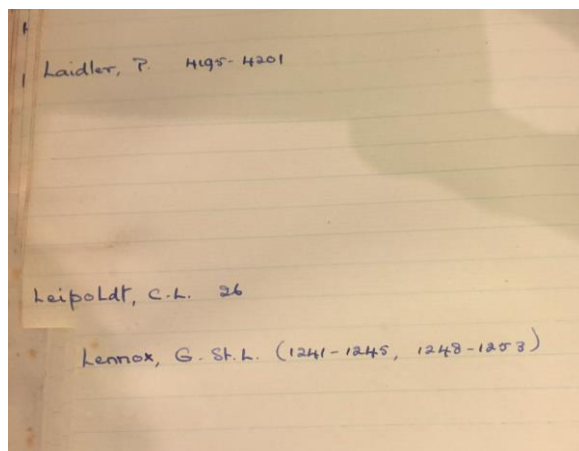 Laidler, P. 4195-4201
Leipoldt, C.L. 26
Lennox, G. St. L. (1241-1245, 1248-1253)